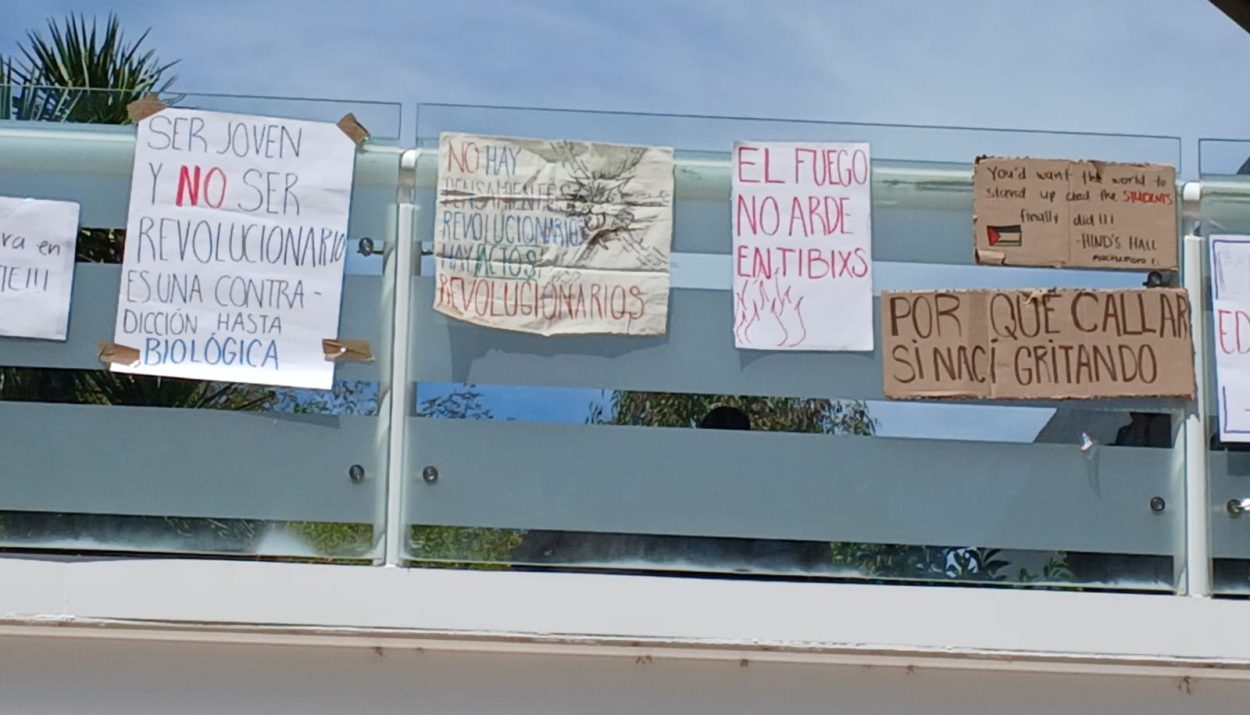 ra en
TE!!!
SER JOVEN
Y NO SER
REVOLUCIONARIO
ES UNA CONTRA-
DICCIÓN HASTA
BIOLÓGICA
NO HAY
PENSAMIENTOS
REVOLUCIONARIOS
HAY ACTOS
REVOLUCIONARIOS
EL FUEGO
NO ARDE
EN TIBIXS
You'd want the world to
stand up and the STUDENTS
finally did!!!
-HIND'S HALL
macklemore
POR QUÉ CALLAR
SI NACÍ GRITANDO
ED